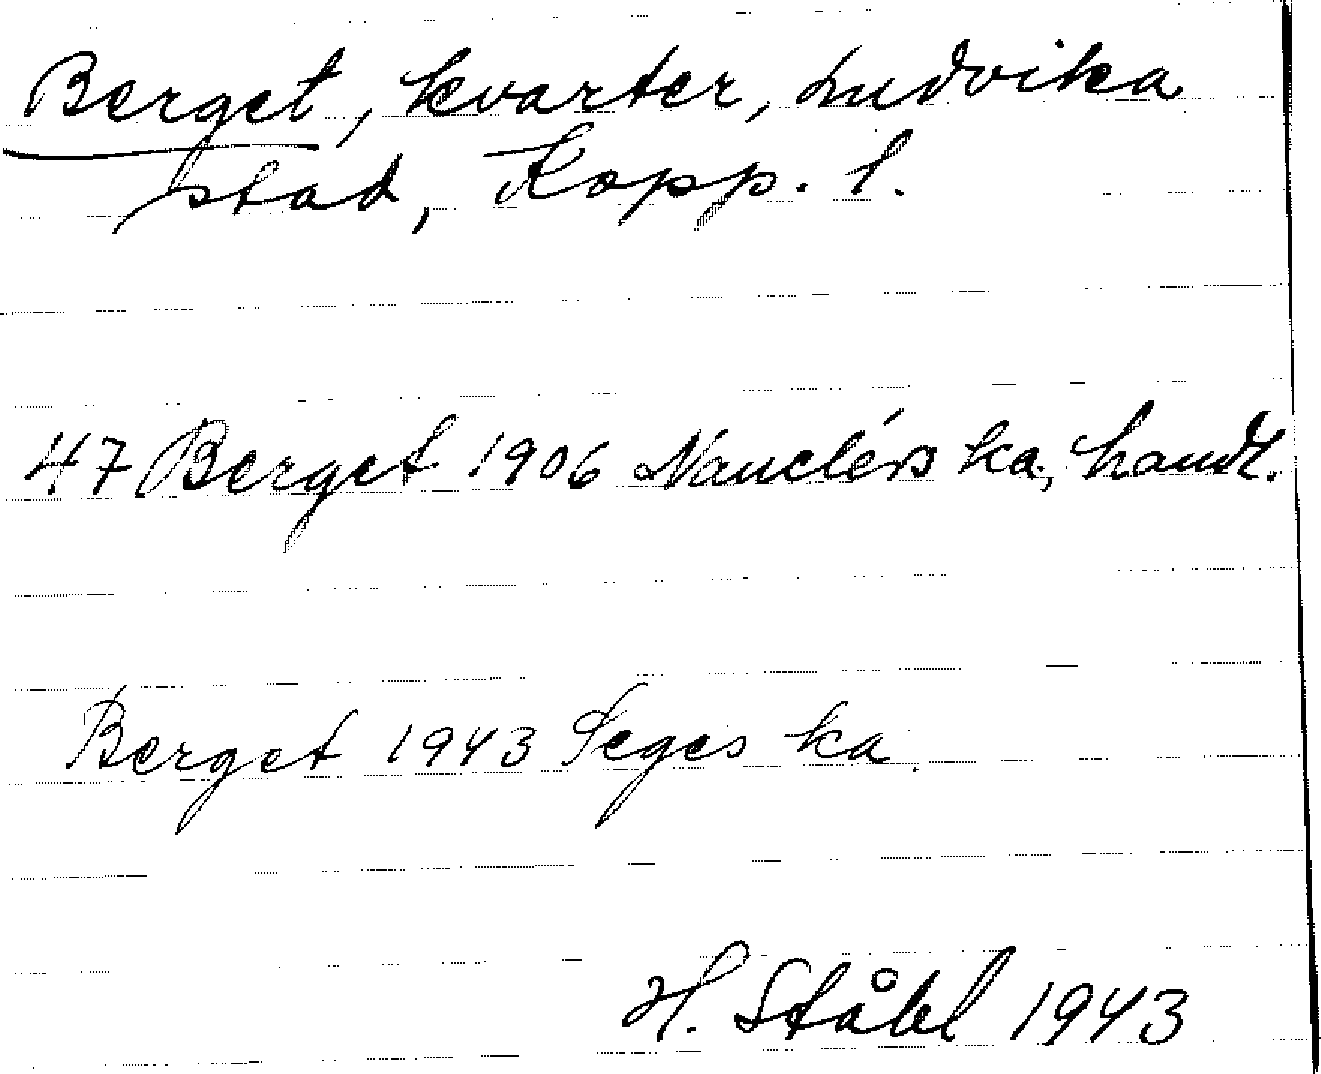 Berget, kvarter, Ludvika
stad, Kopp. l.
47 Berget 1906 Nauclérs ka, handl.
Berget 1943 Seges ka.
H. Ståhl 1943